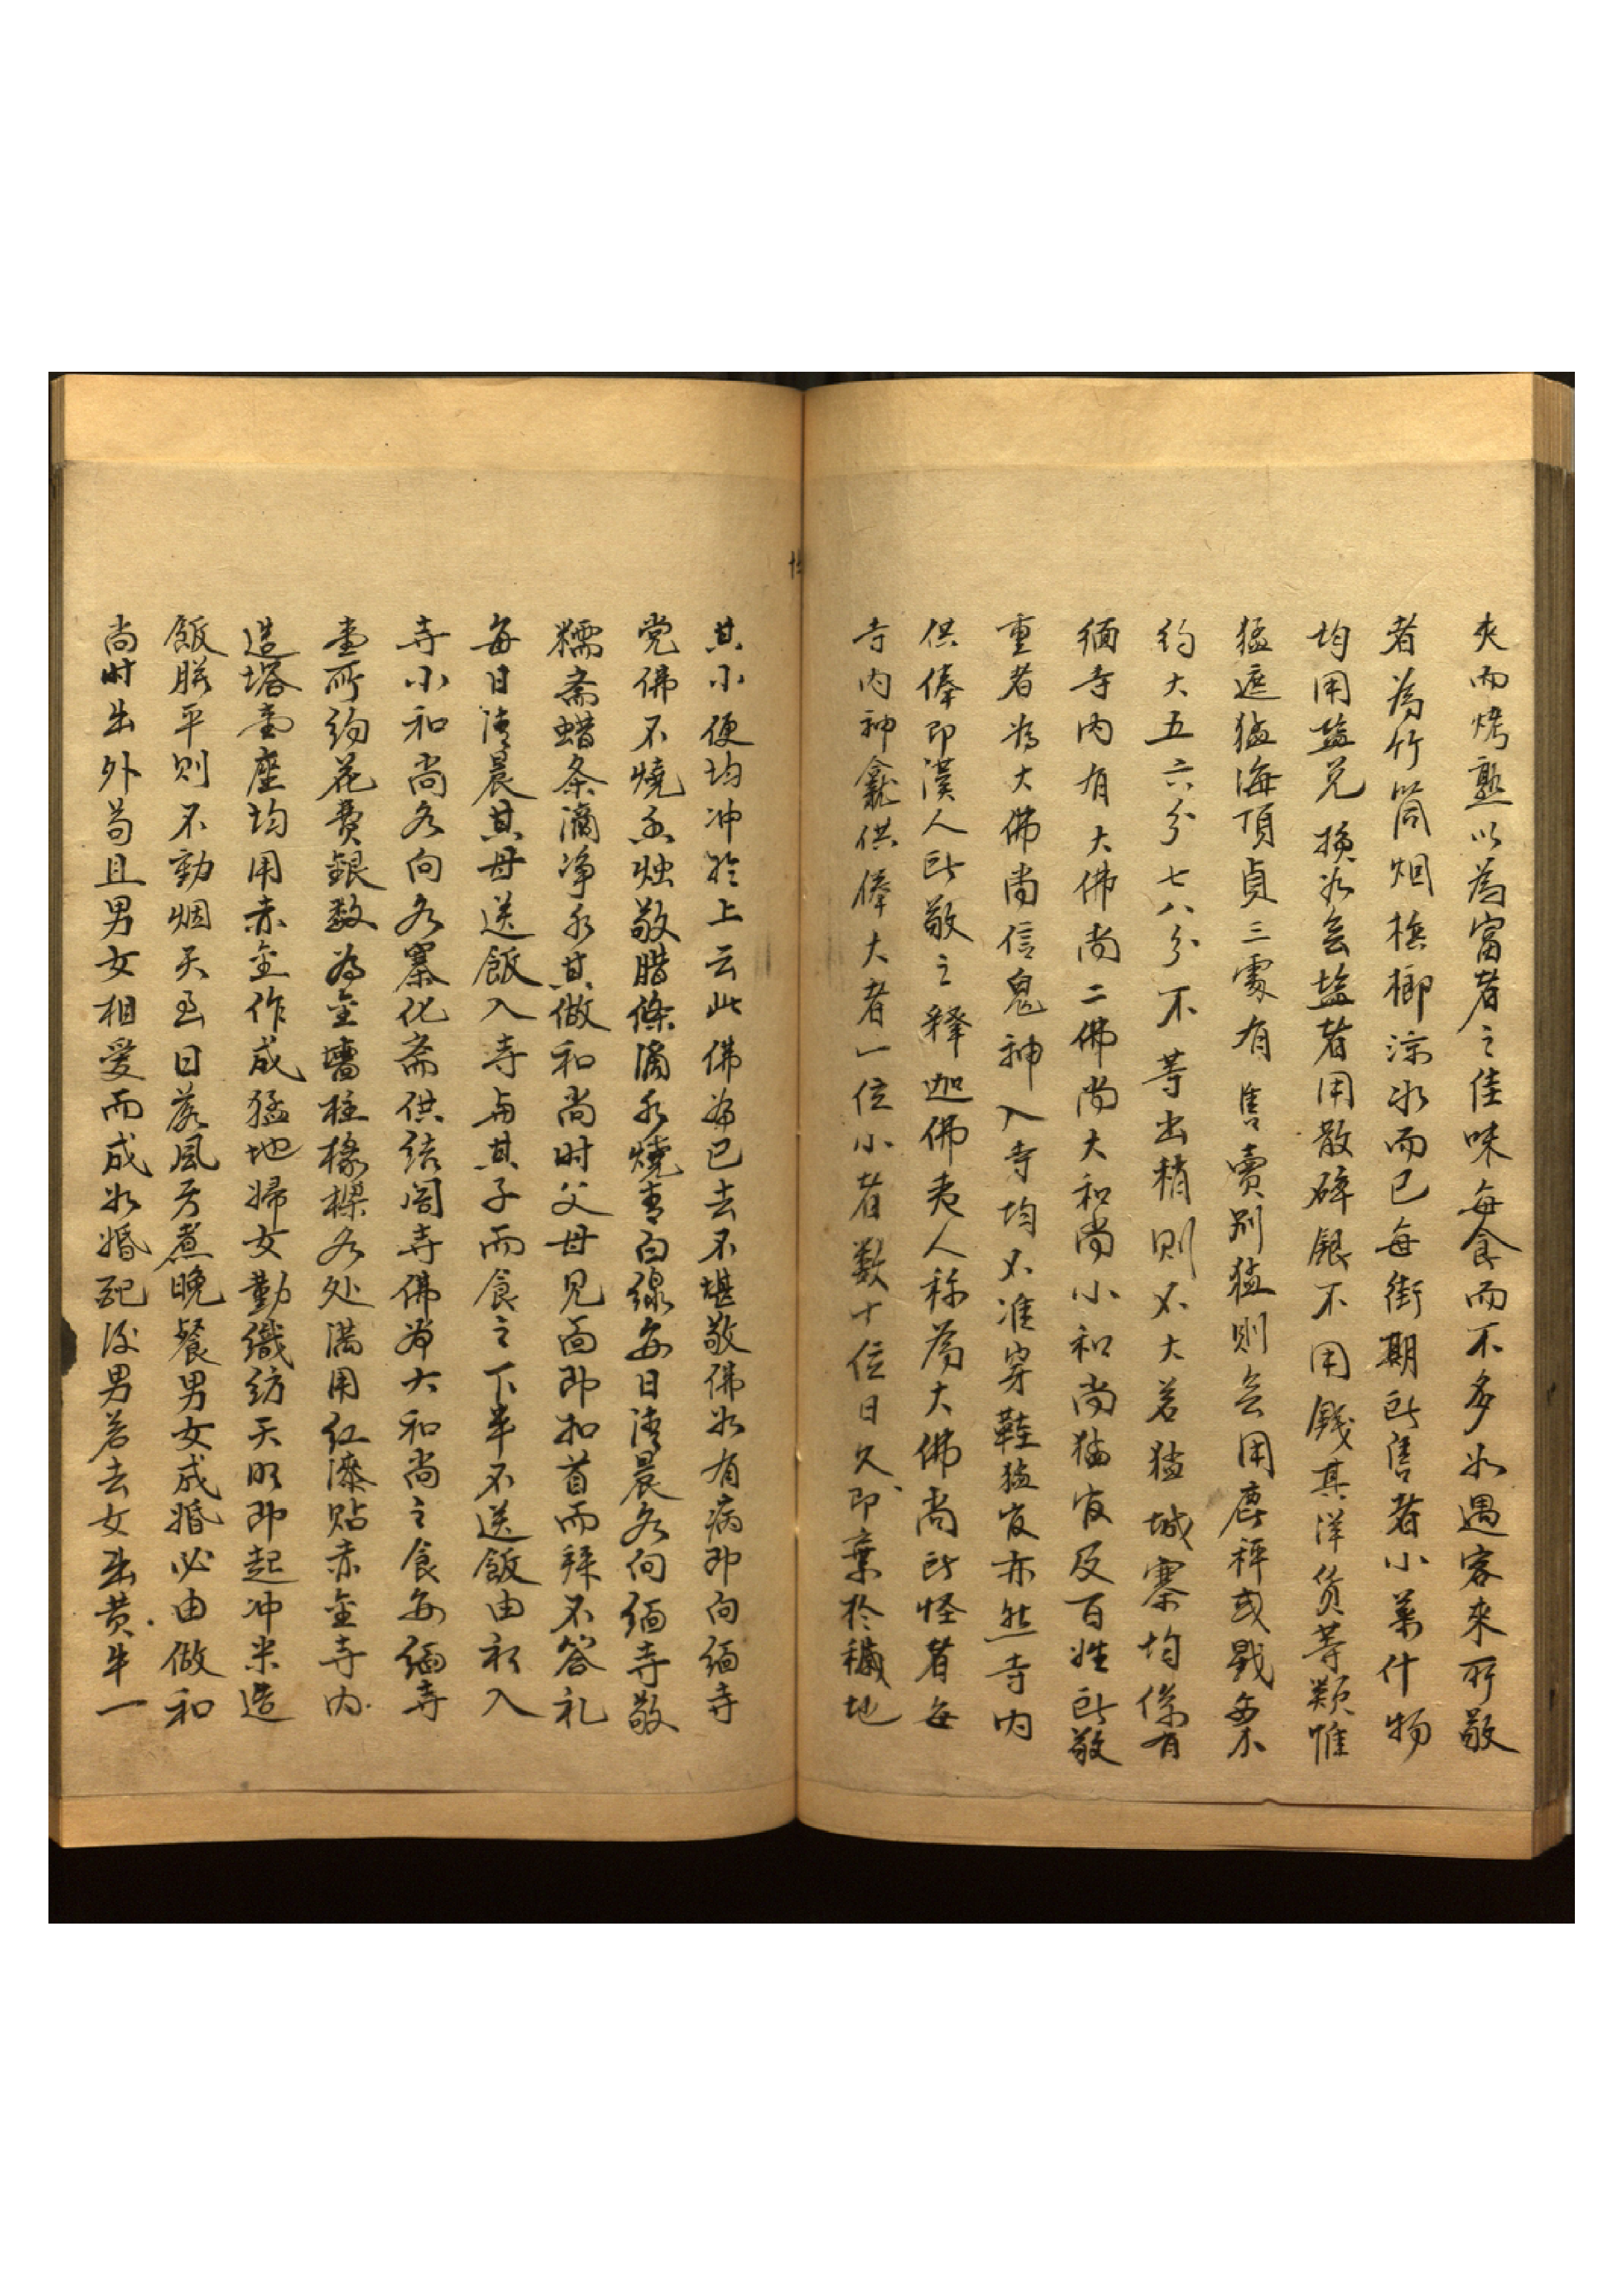 夾而烤熟以為富者之佳味每食而不多氷遇客來所敬
者為竹筒烟梹榔涼水而已每街期所售者小菜什物
均用盐兑換如無盐者用散碎銀不用錢其洋货等類惟
猛遮猛海頂貞三處有售賣别猛則無用麿秤或戥每不
约大五六分七八分不等出稍則又大若猛城寨均係有
缅寺内有大佛尚二佛尚大和尚小和尚猛官及百姓所敬
重者為大佛尚信鬼神入寺均不准穿鞋猛官亦然寺内
供俸即漢人所敬之释迦佛夷人称為大佛尚所怪者每
寺内神龕供俸大者一位小者数十位日久即棄於穢地
其小便均冲於上云此佛為已去不堪敬佛如有病即向缅寺
党佛不燒香烛敬腊條滴水燒青白線每日清晨各向缅寺敬
糯斋蜡条滴净水其做和尚时父母见面即扣首而拜不答礼
每日清晨其母送飯入寺与其子而食之下半不送飯由初入
寺小和尚各向各寨化斋供给阁寺佛爷大和尚之食每缅寺
壹所约花費銀数為金墻柱椽樑各处满用红漆贴赤金寺内
造塔壹座均用赤金作成猛地婦女勤織纺天明即起冲米造
飯朕平則不勤烟天至日落風方煮晚餐男女成婚必由做和
尚时出外苟且男女相爱而成如婚配後男若去女出黄牛一